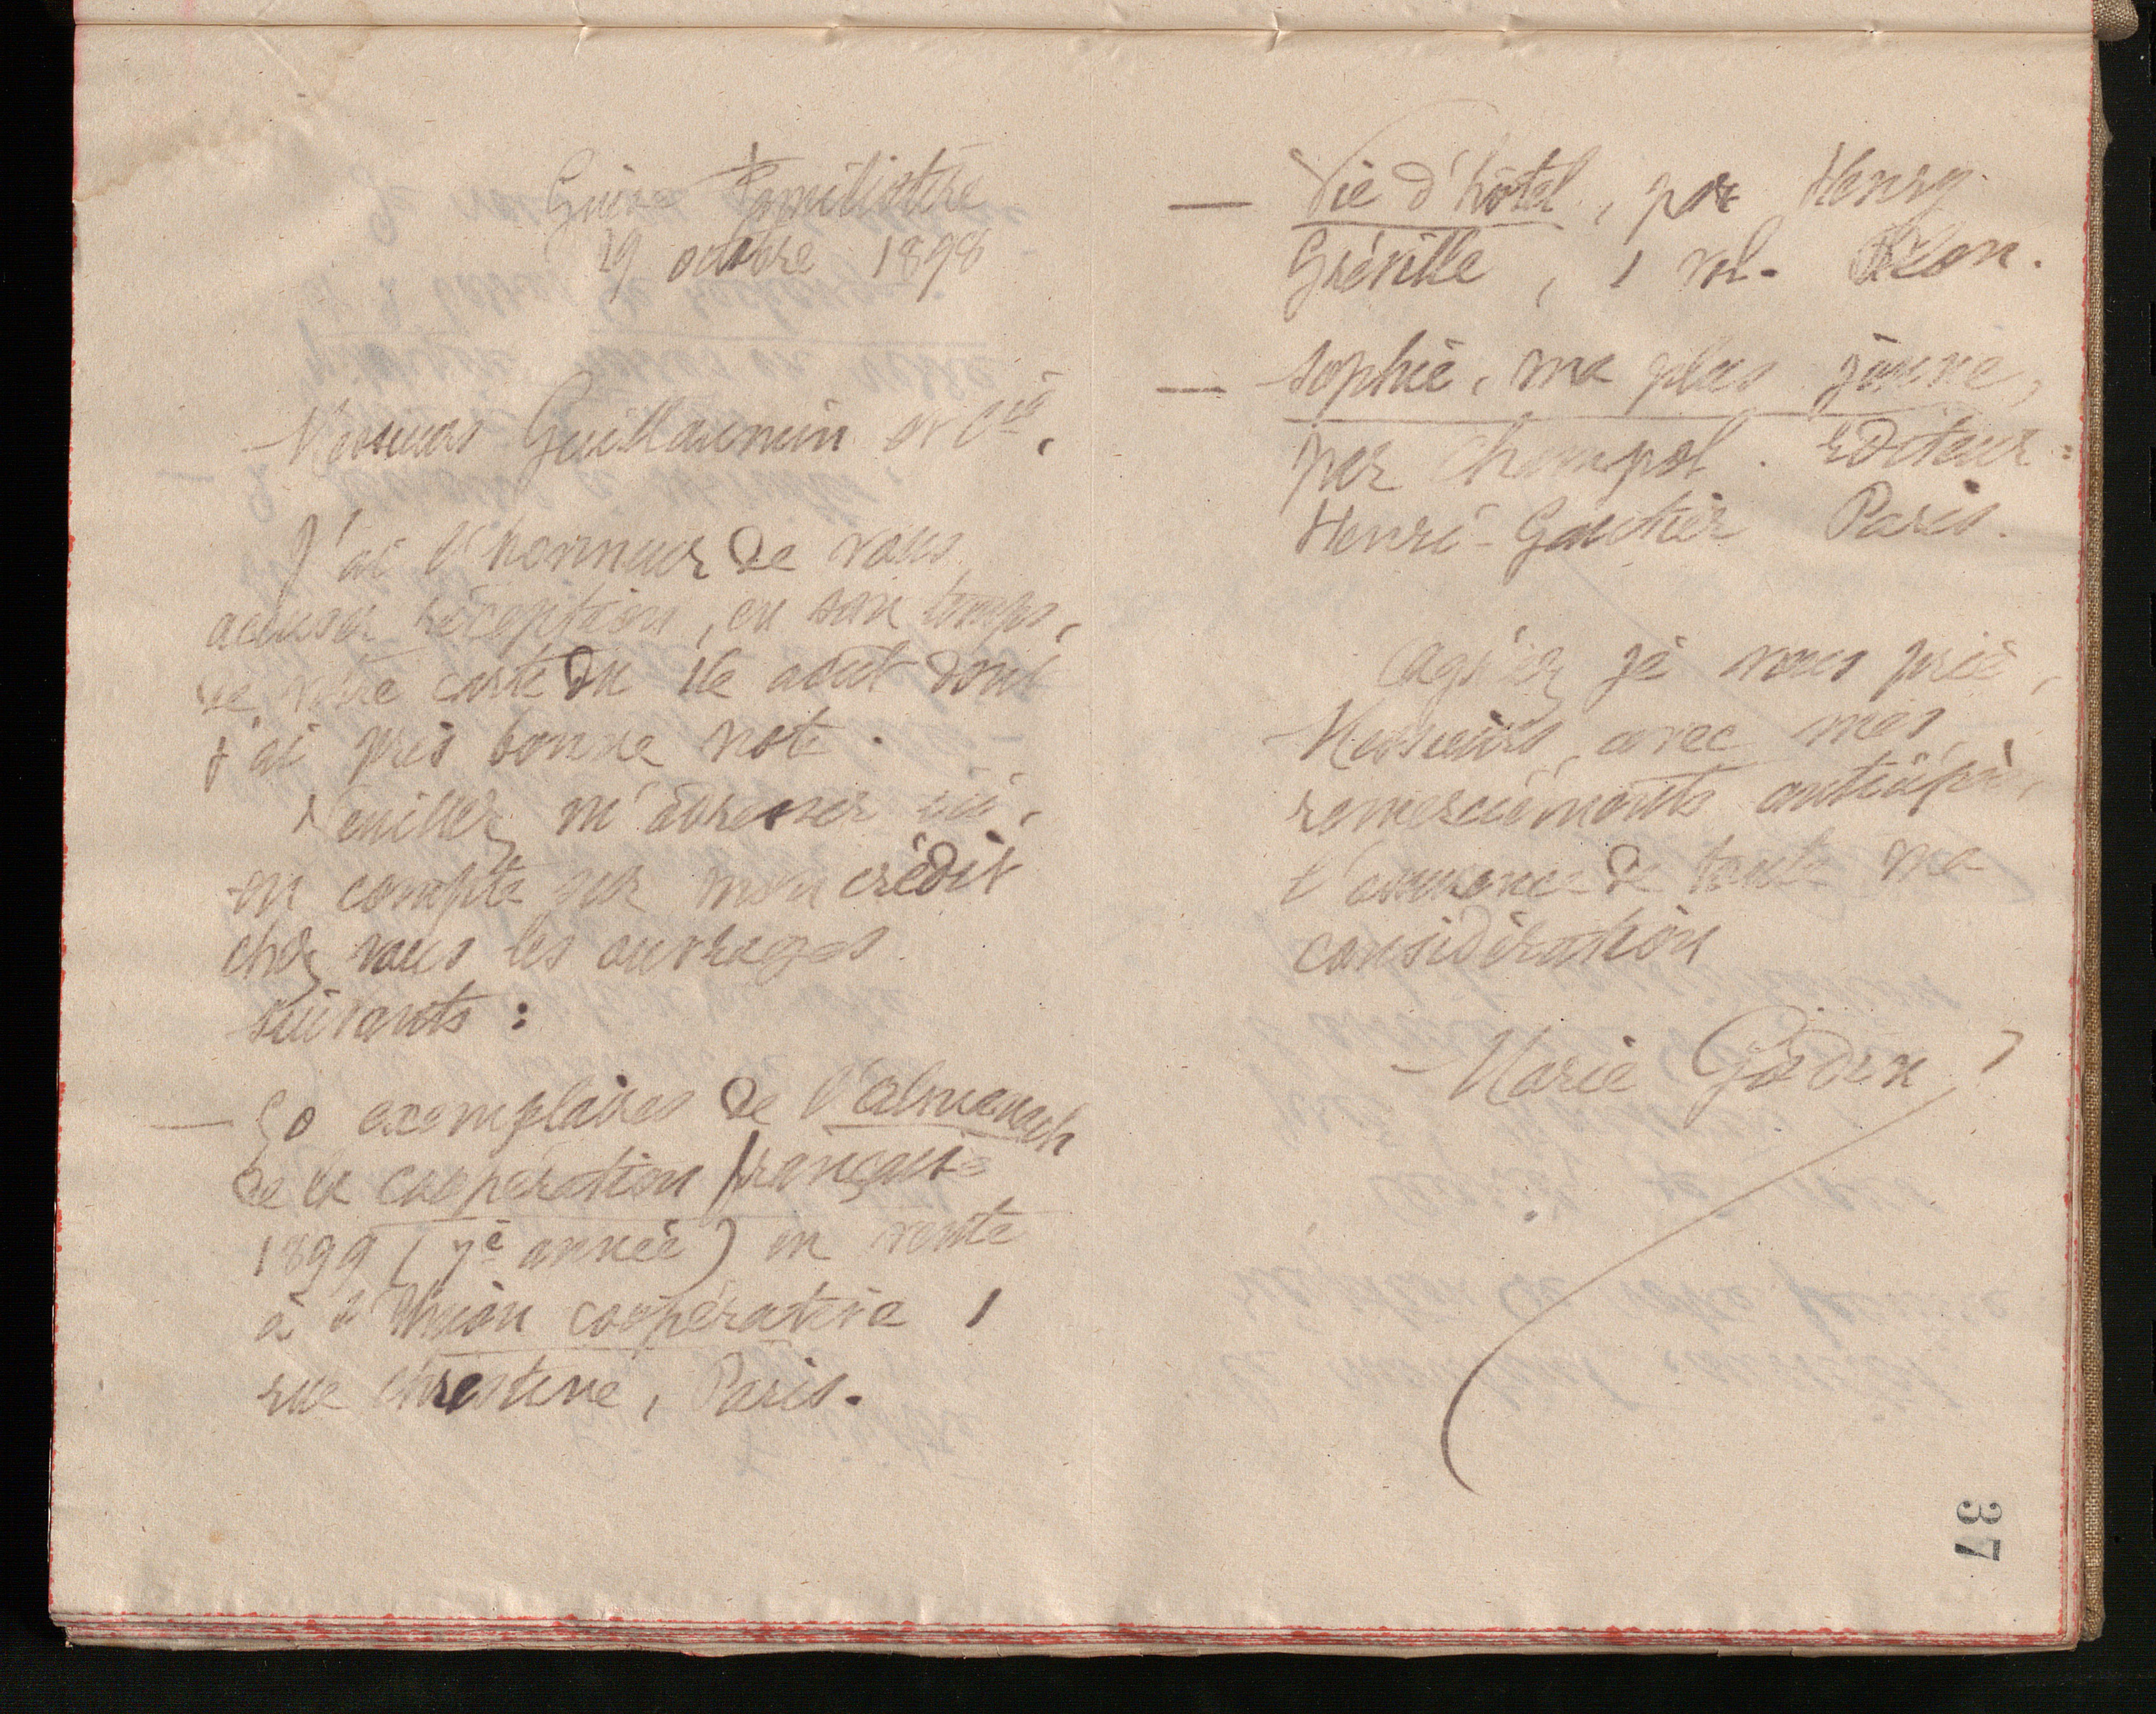 Guise Familistère
19 octobre 1898
Messieurs Guillaumin et Cie,
J'ai l'honneur de vous
accuser réception, en son temps,
de votre carte du 1e août dont
j'ai pris bonne note.
Veuillez m'adresser ici,
en compte sur mon crédit
chez vous les ouvrages
suivants :
— 50 exemplaires de l'almanach
de la coopération française
1899 (7e année) en vente
à l'Union coopérative 1
rue Christine, Paris.
— Vie d'hôtel, par Henry
Gréville, 1 vol. Plon.
— Sophie, ma plus jeune,
par Champol. Editeur :
Henri-Gautier Paris.
Agréez je vous prie,
Messieurs, avec mes
remerciements anticipés,
l'assurance de toute ma
considération
Marie Godin
37